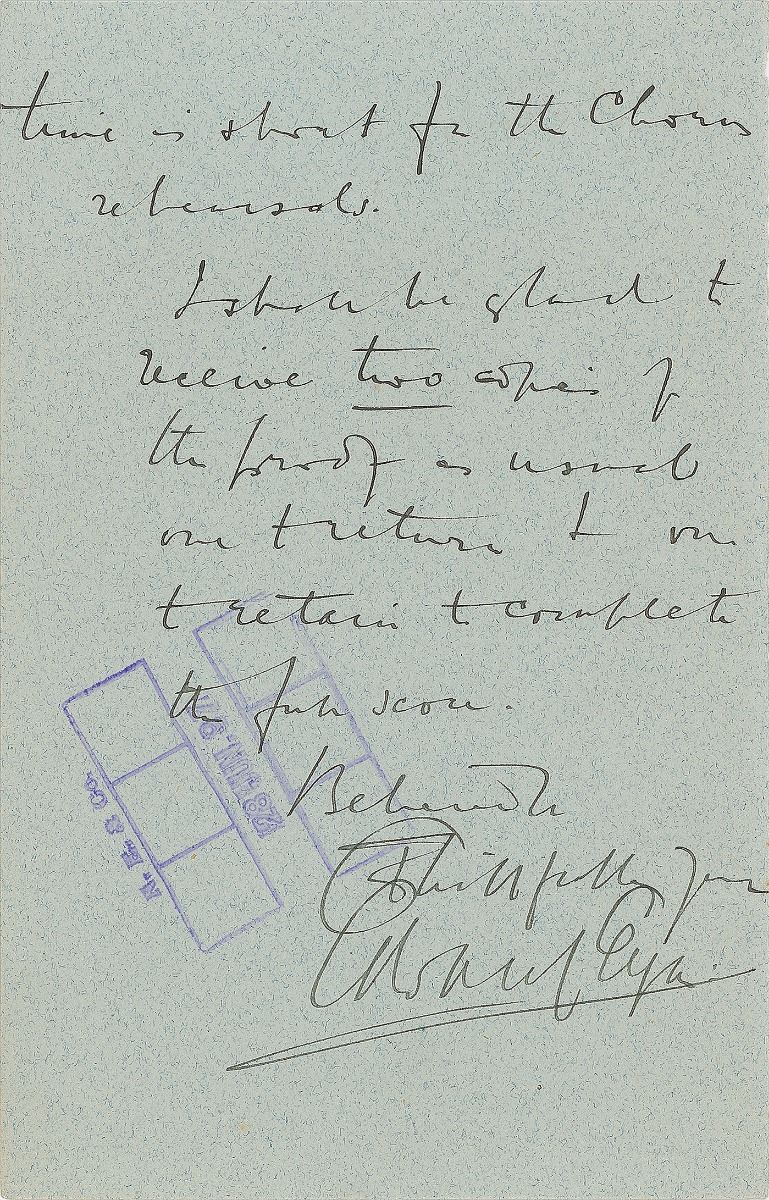 time is short for the Chorus
rehearsals.
I shall be glad to
receive two copies of
the proof as usual
one to return & one
to retain to complete
the full score.
Believe me
faithfully yours
Edward Elgar
28 JUN. 97
& Co.